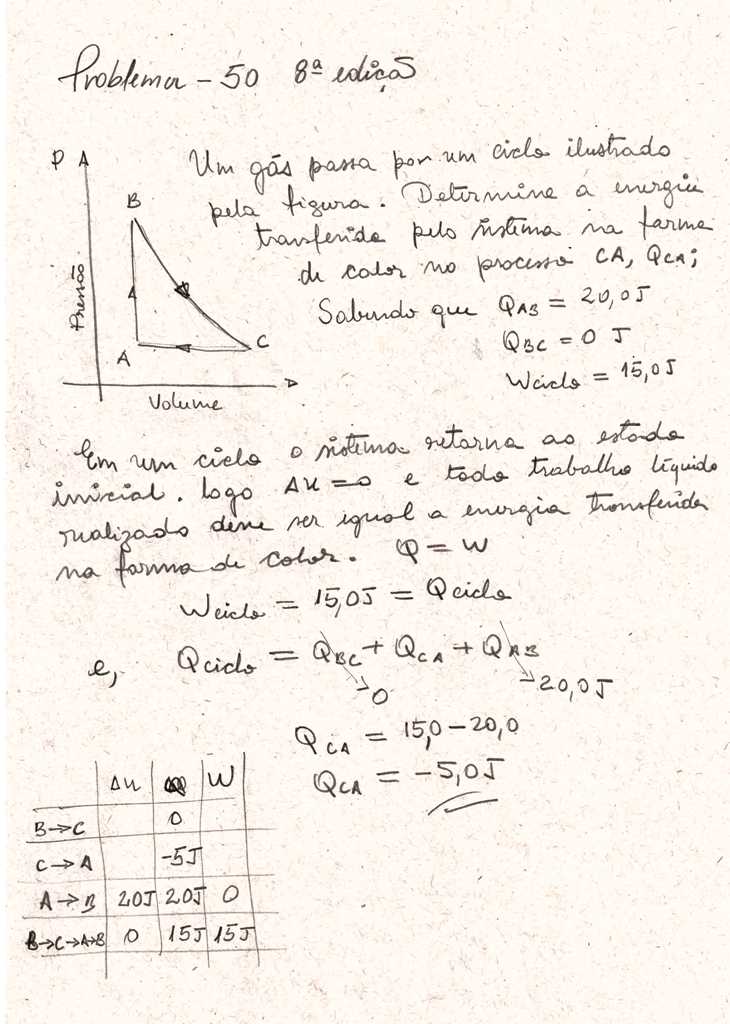 Problema - 50 8ª edição
P
Um gás passa por um ciclo ilustrado
pela figura. Determine a energia
transferida pelo sistema na forma
de calor no processo CA, QCA;
Sabendo que QAB = 20,0J
QBC = 0 J
Wciclo = 15,0J
B
A
C
Pressão
Volume
Em um ciclo o sistema retorna ao estado
inicial. Logo ΔU = 0 e todo trabalho líquido
realizado deve ser igual a energia transferida
na forma de calor. Q = W
Wciclo = 15,0J = Qciclo
e, Qciclo = QBC + QCA + QAB
0
20,0J
QCA = 15,0 - 20,0
QCA = -5,0J
ΔU Q W
B→C 0
C→A -5J
A→B 20J 20J 0
B→C→A→B 0 15J 15J